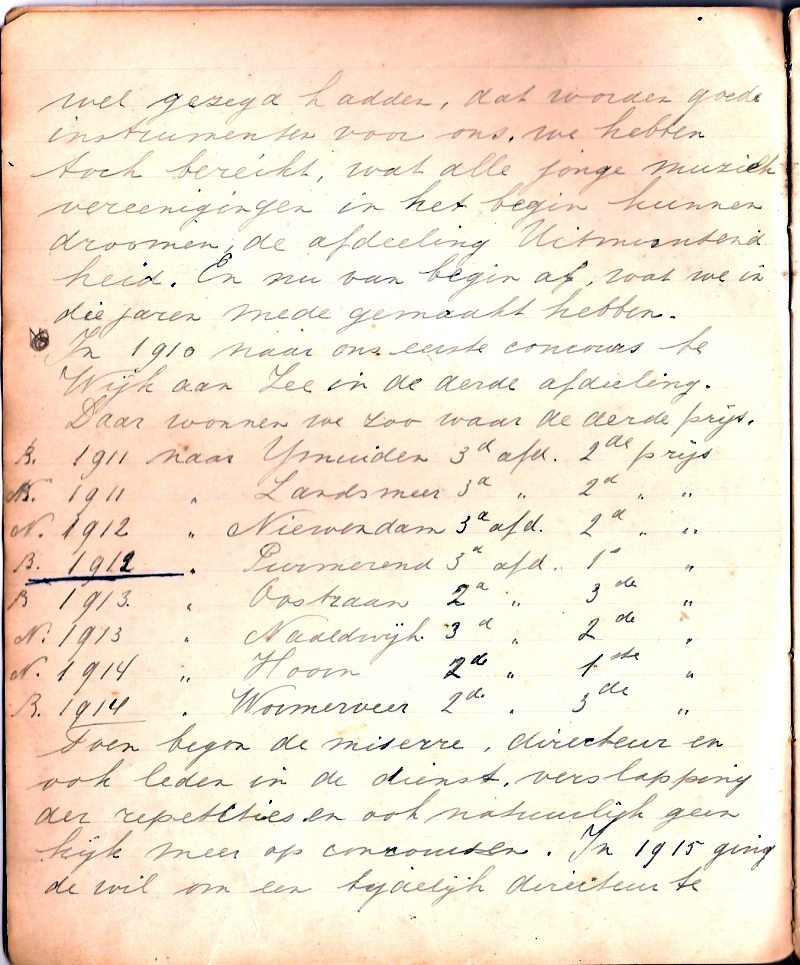 wel gezegd hadden, dat worden goede
instrumenten voor ons, we hebben
toch bereikt, wat alle jonge muziek
vereenigingen in het begin kunnen
droomen, de afdeeling Uitmuntend
heid. En nu van begin af, wat we in
die jaren mede gemaakt hebben.
In 1910 naar ons eerste concours te
Wijk aan Zee in de derde afdeeling.
Daar wonnen we zoo waar de derde prijs.
B. 1911 naar Ymuiden 3d afd. 2de prijs
N. 1911 " Landsmeer 3d " 2d " "
N. 1912 " Niewendam 3d afd. 2d " "
B. 1912 " Purmerend 3d afd. 1e "
B 1913. " Oostzaan 2d " 3de "
N. 1913 " Naaldwijk 3d " 2de "
N. 1914 " Hoorn 2de " 1ste "
B. 1914 " Wormerveer 2de " 3de "
Toen begon de miserre, directeur en
ook leden in de dienst, verslapping
der repetities en ook natuurlijk geen
kijk meer op concoursen. In 1915 ging
de wil om een tijdelijk directeur te